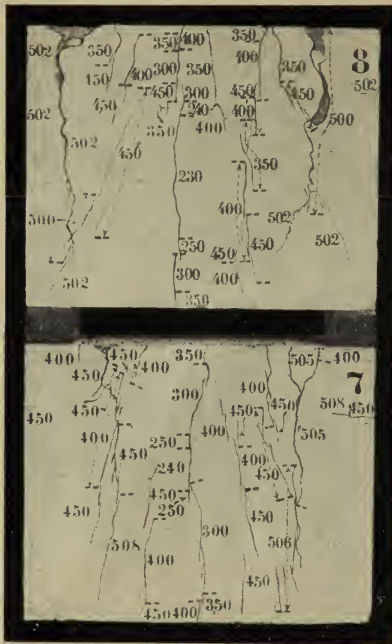 502 350 350 400 350 8
400 400 350
450 400 300 350 502
450 450 300 450 450
502 350 240 400 400 500
502 450 350
230
400
500 250 450 502 502
502 300 450 400
350
400 450 350 505 400
450 400 300 400 450 7
450 450 508 450
450 400 250 400 505
450 240 400
450 450
450 250 450
508 300 506
400
450
450 400 350